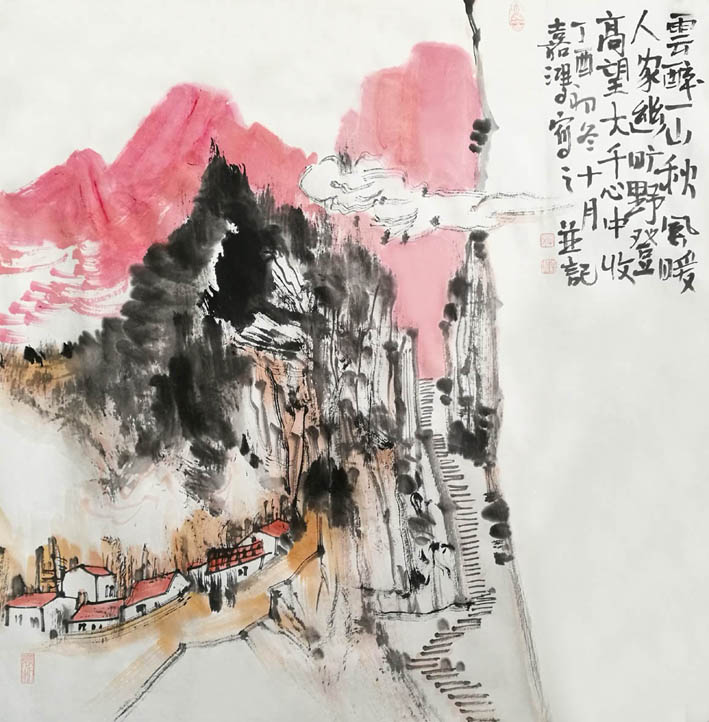 雲醉一山秋風暖
人家旷野登
高望大千心中收
丁酉初冬十月
嘉寫之並記